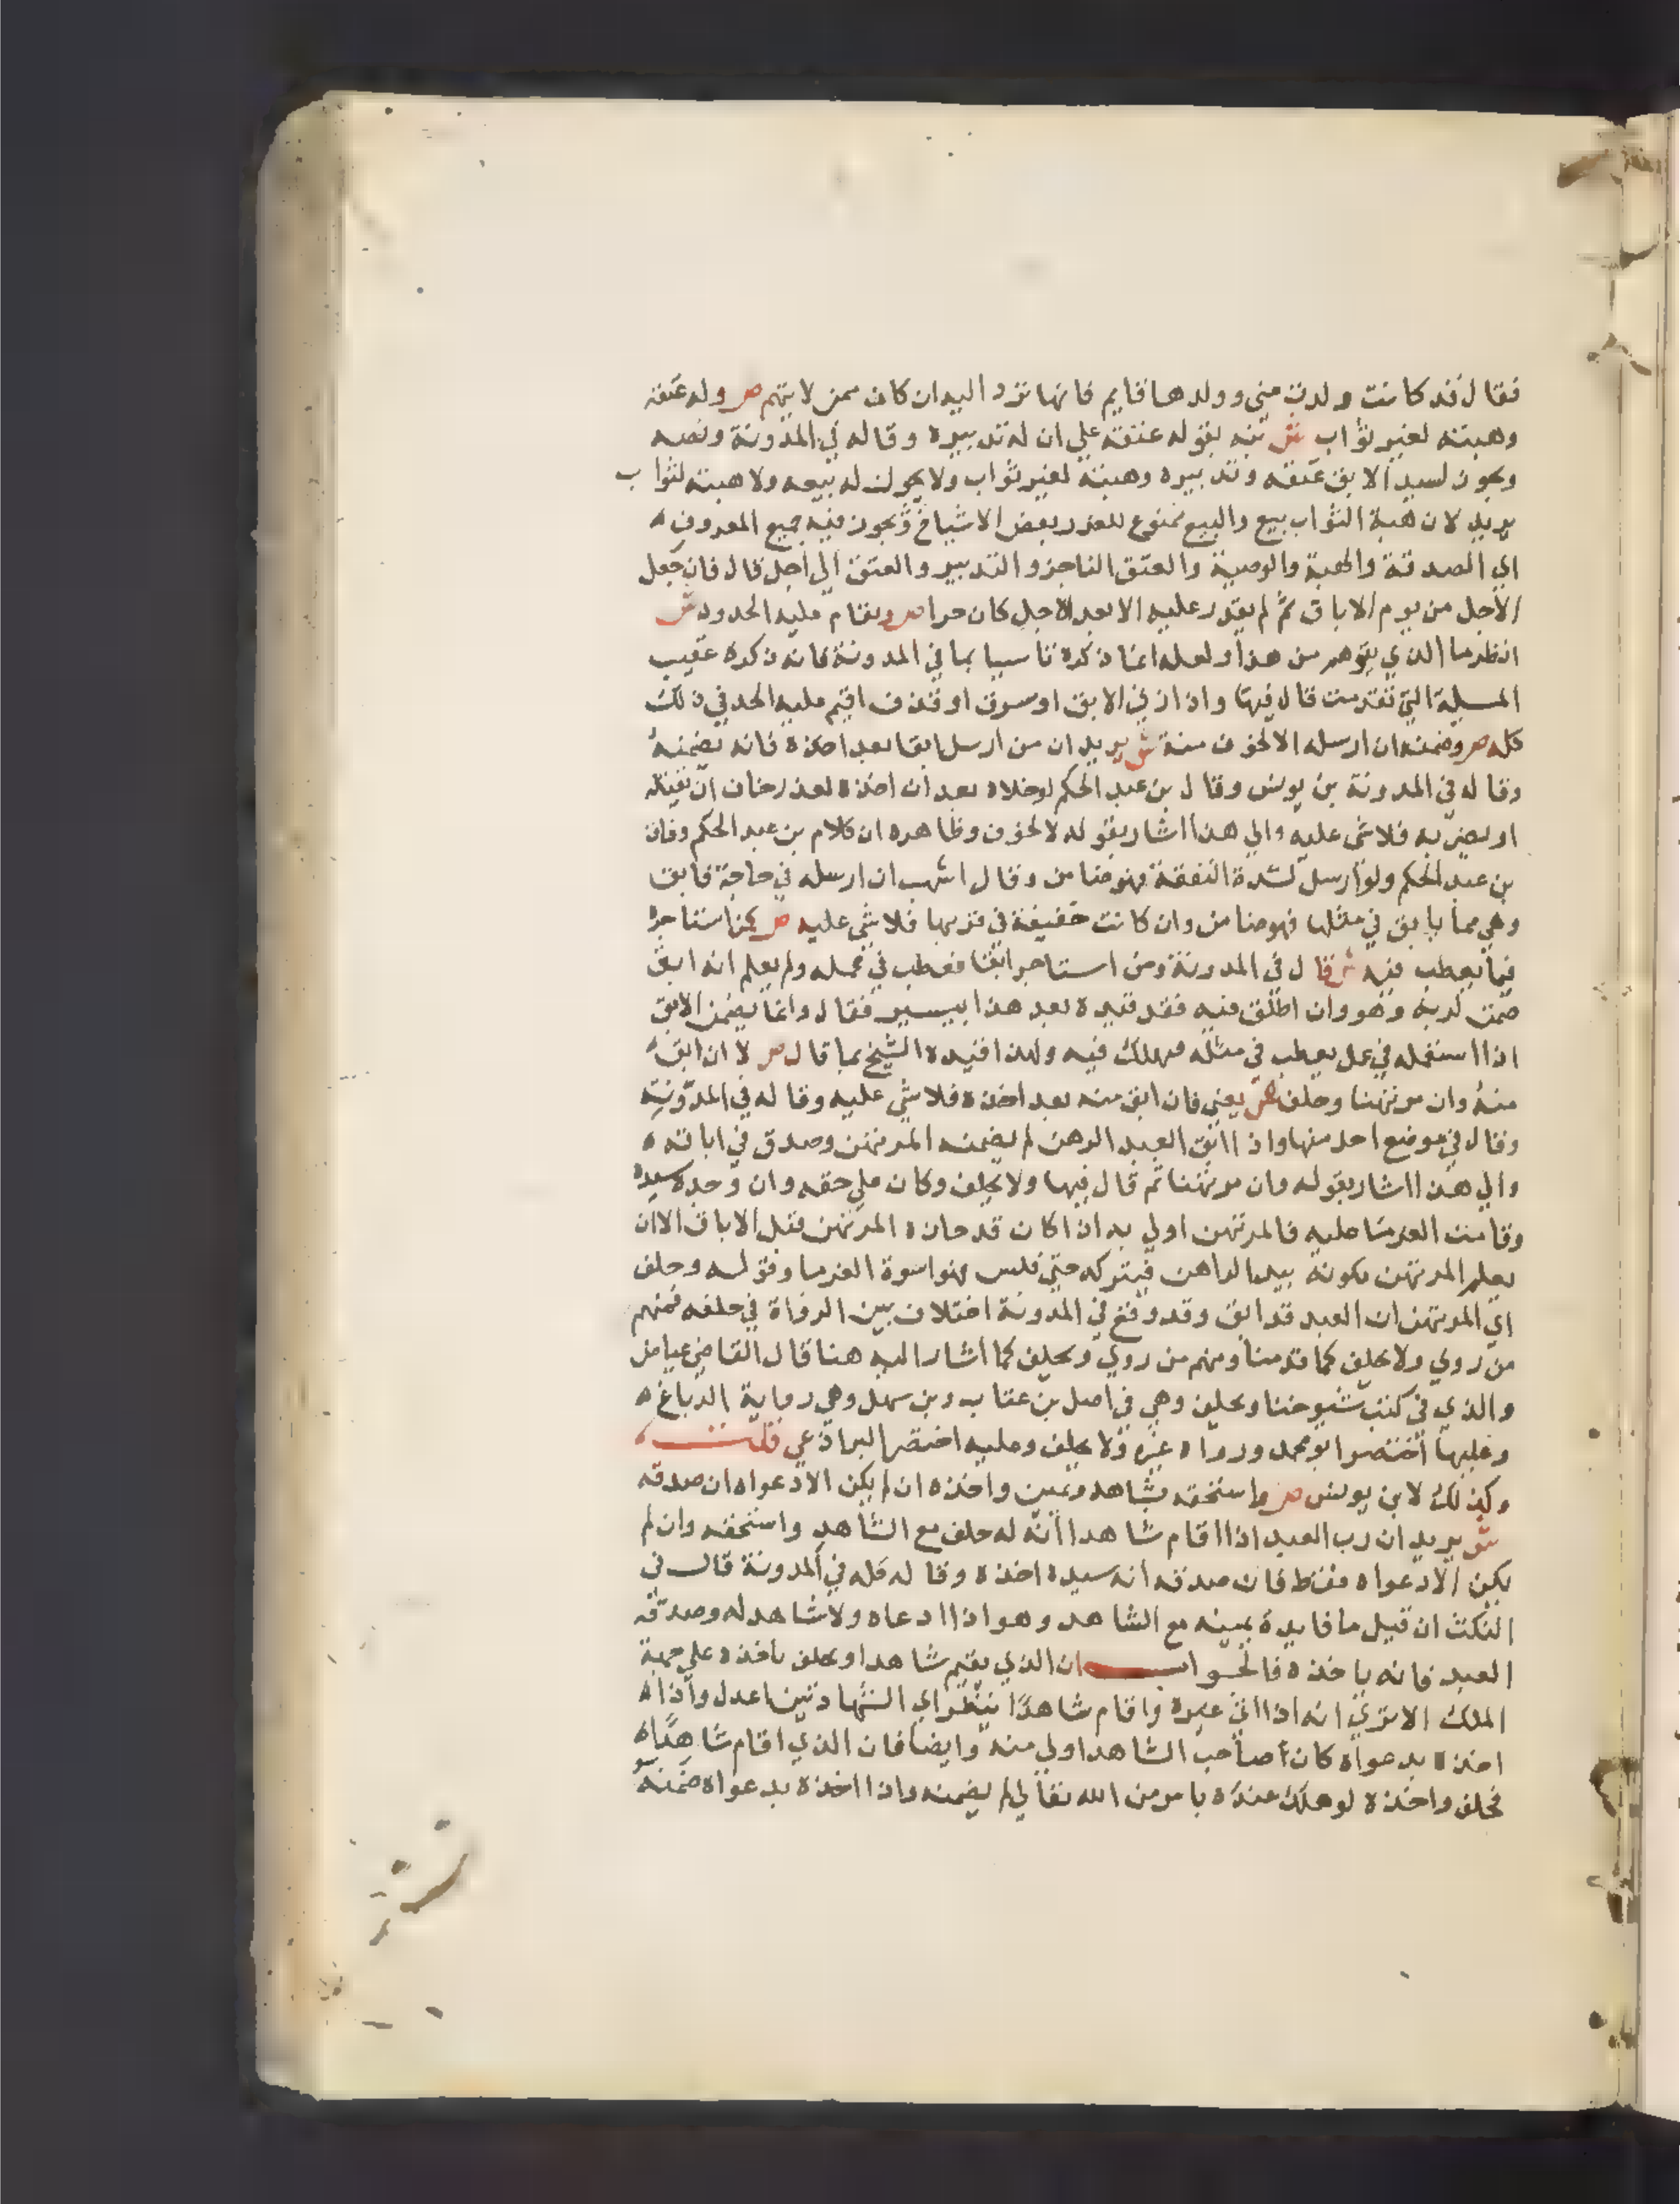 فقال قد كانت ولدت مني وولدها قايم فانها ترد اليه ان كان ممن لا يتهم ص وله عتقه
وهبته لغير ثواب ش نبه بقوله عتقه علي ان له تدبيره وقاله في المدونة ونصه
ويجوز لسيد الابق عتقه وتدبيره وهبته لغير ثواب ولا يجوز له بيعه ولا هبته لثواب
يريد لان هبة الثواب بيع والبيع ممنوع للغرر بعض الاشياخ ويجوز فيه جميع المعروف
اي الصدقة والهبة والوصية والعتق الناجز والتدبير والعتق الي اجل قال فان جعل
الاجل من يوم الاباق ثم لم يقدر عليه الا بعد الاجل كان حرا ص ويقام عليه الحدود ش
انظر ما الذي يتوهم من هذا ولعله انما ذكره تاسيا بما في المدونة فانه ذكره عقيب
المسيلة التي تقدمت قال فيها واذا زني الابق او سرق او قذف اقيم عليه الحد في ذلك
كله ص وضمنه ان ارسله الا لخوف منه ش يريد ان من ارسل ابقا بعد اخذه فانه يضمنه
وقاله في المدونة بن يونس وقال بن عبد الحكم لو خلاه بعد ان اخذه لعذر خاف ان يقتله
او يضربه فلا شي عليه والي هذا اشار بقوله لا لخوف وظاهره ان كلام بن عبد الحكم وفاق
بن عبد الحكم ولو ارسله لشدة النفقة فهو ضامن وقال اشهب ان ارسله في حاجة فابق
وهي مما يابق في مثلها فهو ضامن وان كانت خفيفة في قربها فلا شي عليه ص كمن استاجره
فيما يعطب فيه ش قال في المدونة ومن استاجر ابقا فعطب في عمله ولم يعلم انه ابق
ضمن لربه وهو وان اطلق فيه فقد قيده بعد هذا بيسير فقال وانما يضمن الابق
اذا استعمله في عمل يعطب في مثله فهلك فيه ولهذا قيده الشيخ بما قال ص لا ان ابق
منه وان مرتهنا وحلف ش يعني فان ابق منه بعد اخذه فلا شي عليه وقاله في المدونة
وقال في موضع احد منها واذا ابق العبد الرهن لم يضمنه المرتهن وصدق في اباقه
والي هذا اشار بقوله وان مرتهنا ثم قال فيها ولا يحلف وكان علي حقه وان وجده سيده
وقامت الغرما عليه فالمرتهن اولي به اذا كان قد حازه المرتهن قبل الاباق الا ان
يعلم المرتهن بكونه بيد الراهن فيتركه حتي فلس فهو اسوة الغرما وقوله وحلف
اي المرتهن ان العبد قد ابق وقد وقع في المدونة اختلاف بين الرواة في حلفه فمنهم
من روي ولا يحلف كما قدمنا ومنهم من روي ويحلف كما اشار اليه هنا قال القاضي عياض
والذي في كتب شيوخنا ويحلف وهي في اصل بن عتاب وبن سهل وهي رواية الدباغ
وعليها اختصر ابو محمد ورواه غيره ولا يحلف وعليه اختصر البراذعي قلت
وكذلك لابن يونس ص واستحقه بشاهد ويمين واخذه ان لم يكن الا دعواه ان صدقه
ش يريد ان رب العبد اذا اقام شاهدا انه له حلف مع الشاهد واستحقه وان لم
يكن الا دعواه فقط فان صدقه انه سيده اخذه وقاله كله في المدونة قال في
النكت ان قيل ما فايدة يمينه مع الشاهد وهو اذا ادعاه ولا شاهد له وصدقه
العبد فانه ياخذه فالجواب ان الذي يقيم شاهدا ويحلف ياخذه علي جهة
الملك الا تري انه اذا اتي غيره واقام شاهدا ينظر اي الشهادتين اعدل واذا
اخذه بدعواه كان صاحب الشاهد اولي منه وايضا فان الذي اقام شاهدا
فحلف واخذه لو هلك عنده بامر من الله تعالي لم يضمنه واذا اخذه بدعواه ضمنه